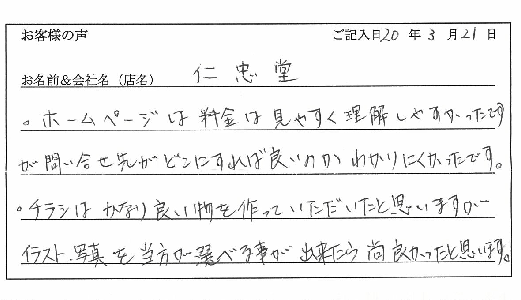 お客様の声 ご記入日20 年 3 月 21 日
お名前&会社名（店名） 仁忠堂
。ホームページは料金は見やすく理解しやすかったです
が問い合せ先がどこにすれば良いのかわかりにくかったです。
。チラシはかなり良い物を作っていただいたと思いますが
イラスト.写真を当方が選べる事が出来たら尚良かったと思います。